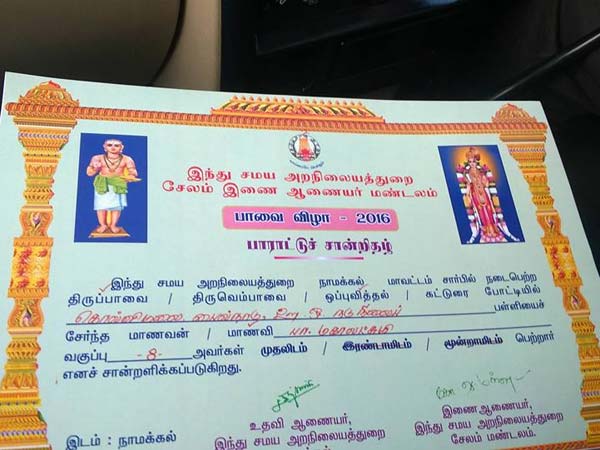 இந்து சமய அறநிலையத்துறை
சேலம் இணை ஆணையர் மண்டலம்
பாவை விழா - 2016
பாராட்டுச் சான்றிதழ்
இந்து சமய அறநிலையத்துறை நாமக்கல் மாவட்டம் சார்பில் நடைபெற்ற
திருப்பாவை / திருவெம்பாவை / ஒப்புவித்தல் / கட்டுரை போட்டியில்
கொல்லிமலை, வாசலூர், ஊ. ஒ. நடுநிலைப் பள்ளியைச்
சேர்ந்த மாணவன் / மாணவி பா. மகாலட்சுமி
வகுப்பு -8- அவர்கள் முதலிடம் / இரண்டாமிடம் / மூன்றாமிடம் பெற்றார்
எனச் சான்றளிக்கப்படுகிறது.
உதவி ஆணையர், இணை ஆணையர்,
இடம் : நாமக்கல் இந்து சமய அறநிலையத்துறை இந்து சமய அறநிலையத்துறை
சேலம் மண்டலம்.